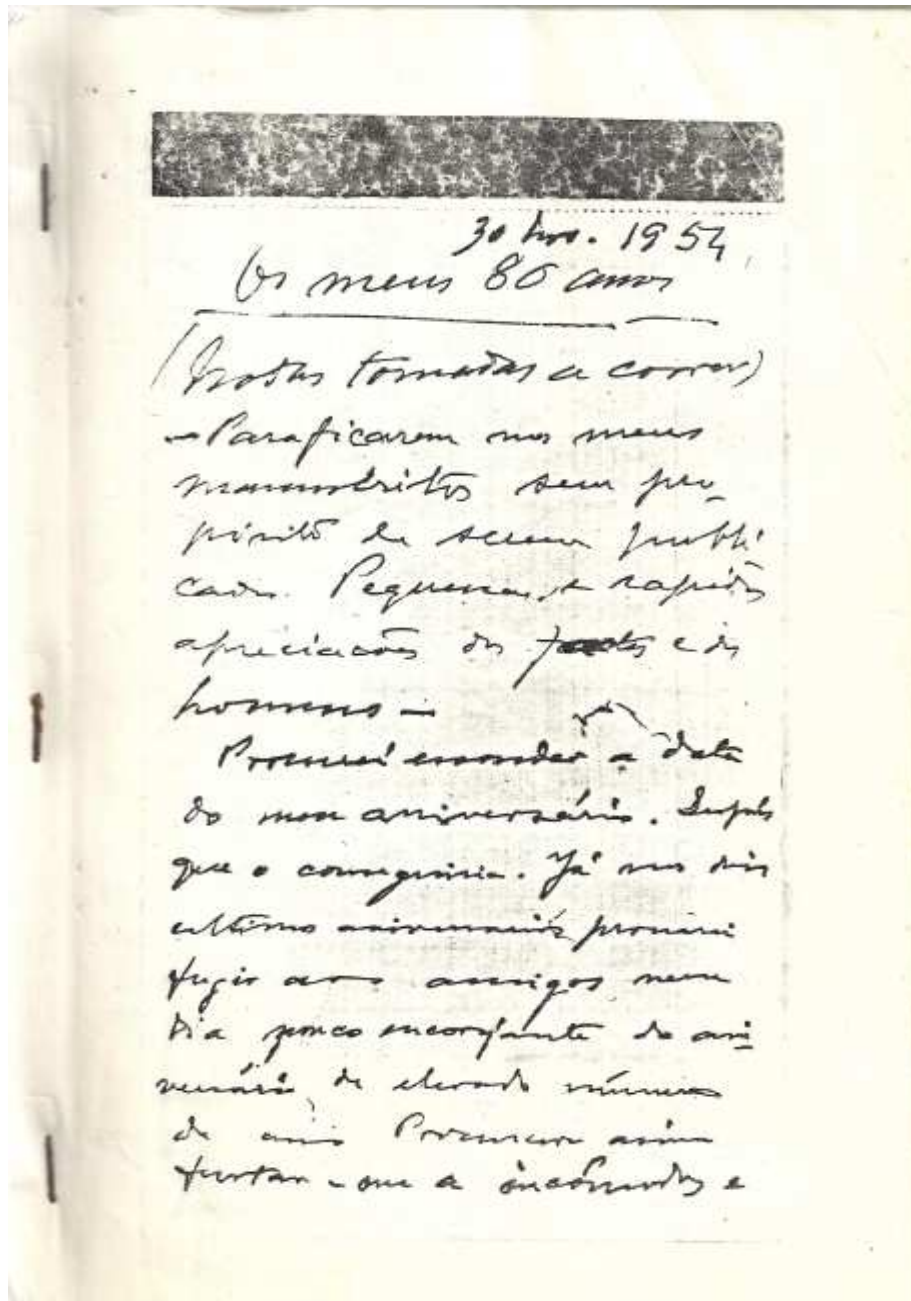 30 1954
Os meus 80 anos
(Notas tomadas a correr)
— Para ficarem nos meus
manuscritos sem pro-
pósito de serem publi
cados. Pequenas e rapidas
apreciacões dos factos e dos
homens —
Procurei esconder a data
do meu aniversário. Supús
que o conseguiria. Já nos dois
ultimos aniversarios procurei
fugir aos amigos nesse
dia pouco encorajante do ani-
versário de elevado número
de anos Procurava assim
furtar-me a incómodos e